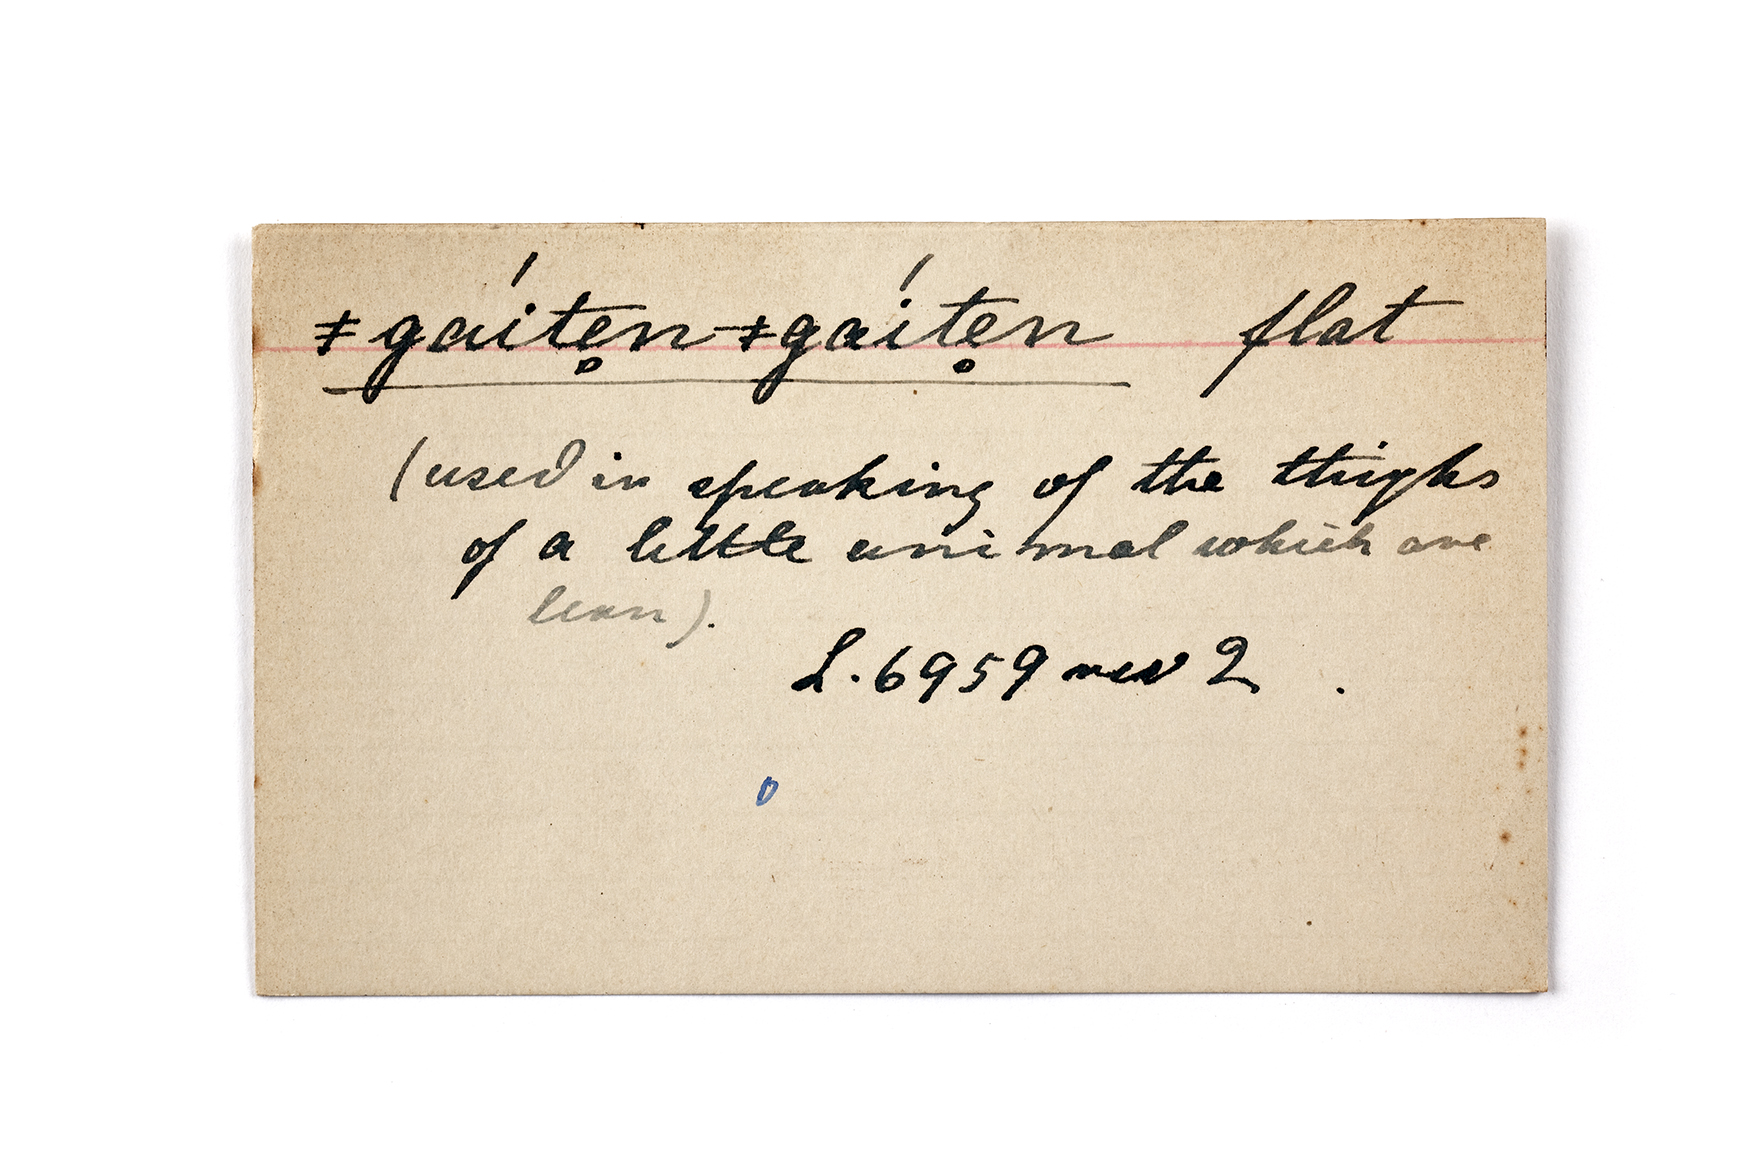 ǂgáitẹn-ǂgáitẹn flat
(used in speaking of the thighs
of a little animal which are
lean).
L.6959 rev 2 .
0